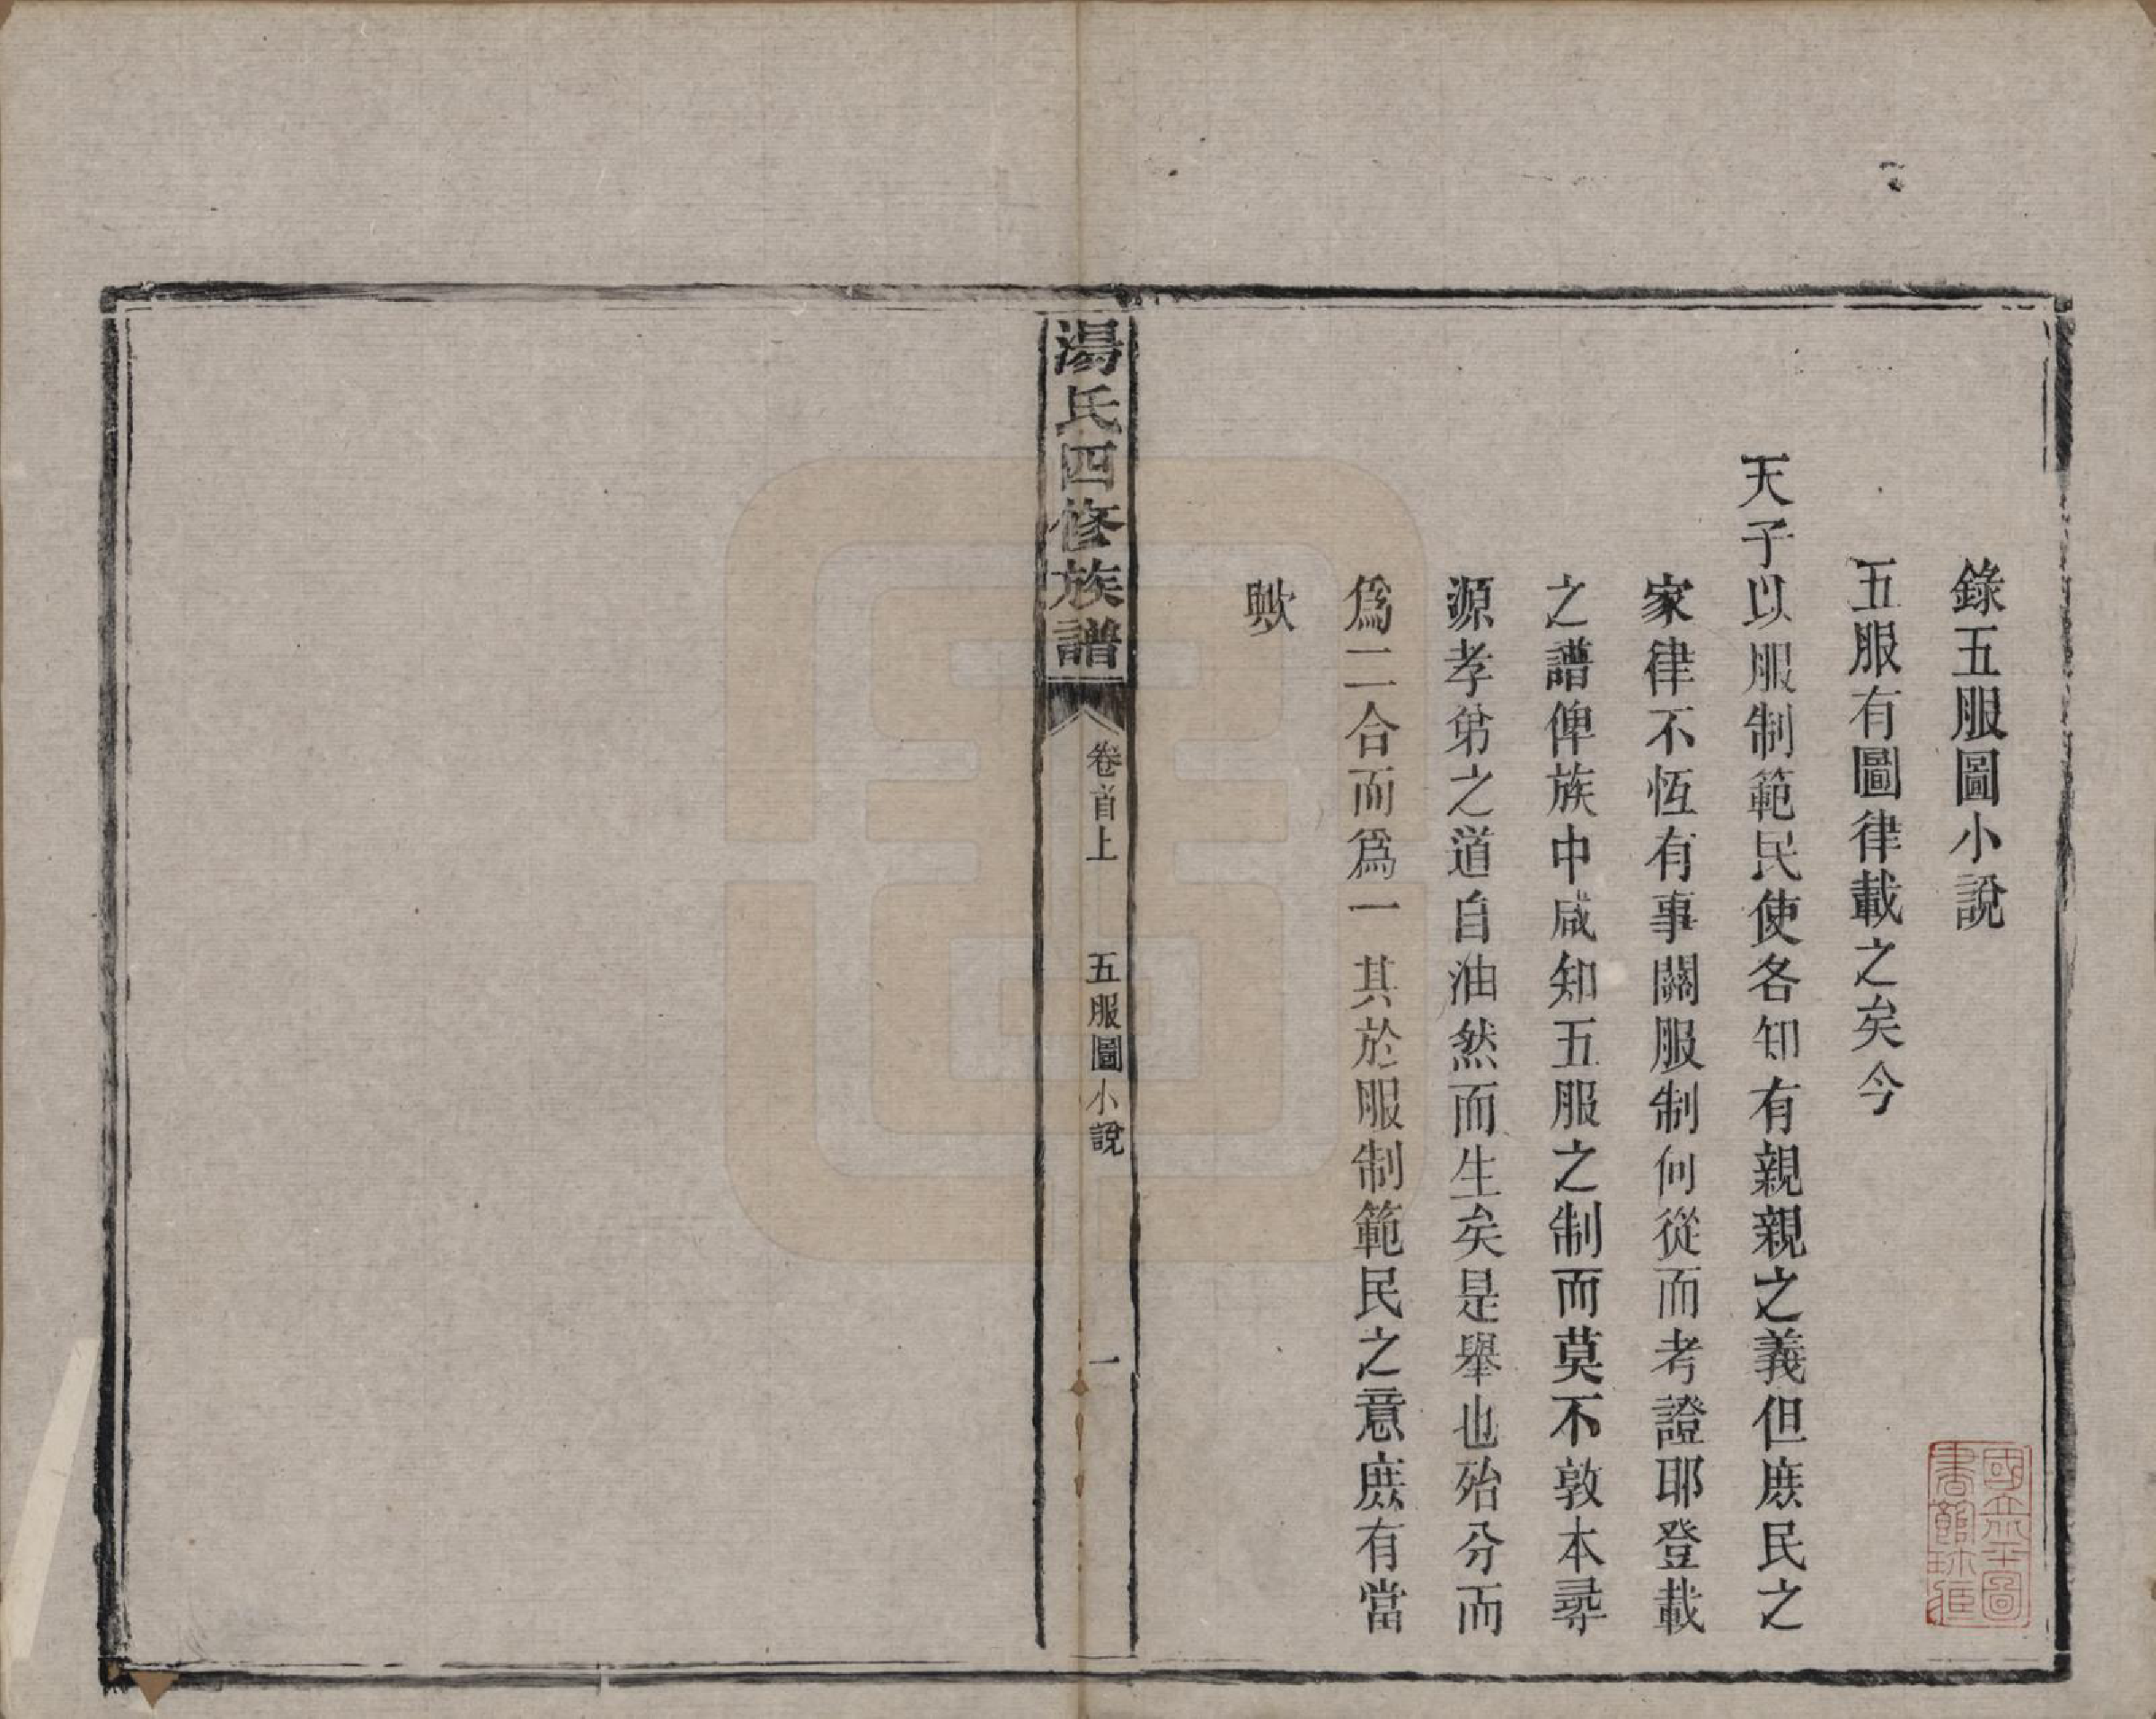 錄五服圖小說
五服有圖律載之矣今
天子以服制範民使各知有親親之義但庶民之
家律不恆有事關服制何從而考證耶登載
之譜俾族中咸知五服之制而莫不敦本尋
源孝弟之道自油然而生矣是舉也殆分而
爲二合而爲一其於服制範民之意庶有當
歟
湯氏四修族譜
卷首上
五服圖小說
一
國立北平圖
書館珍藏